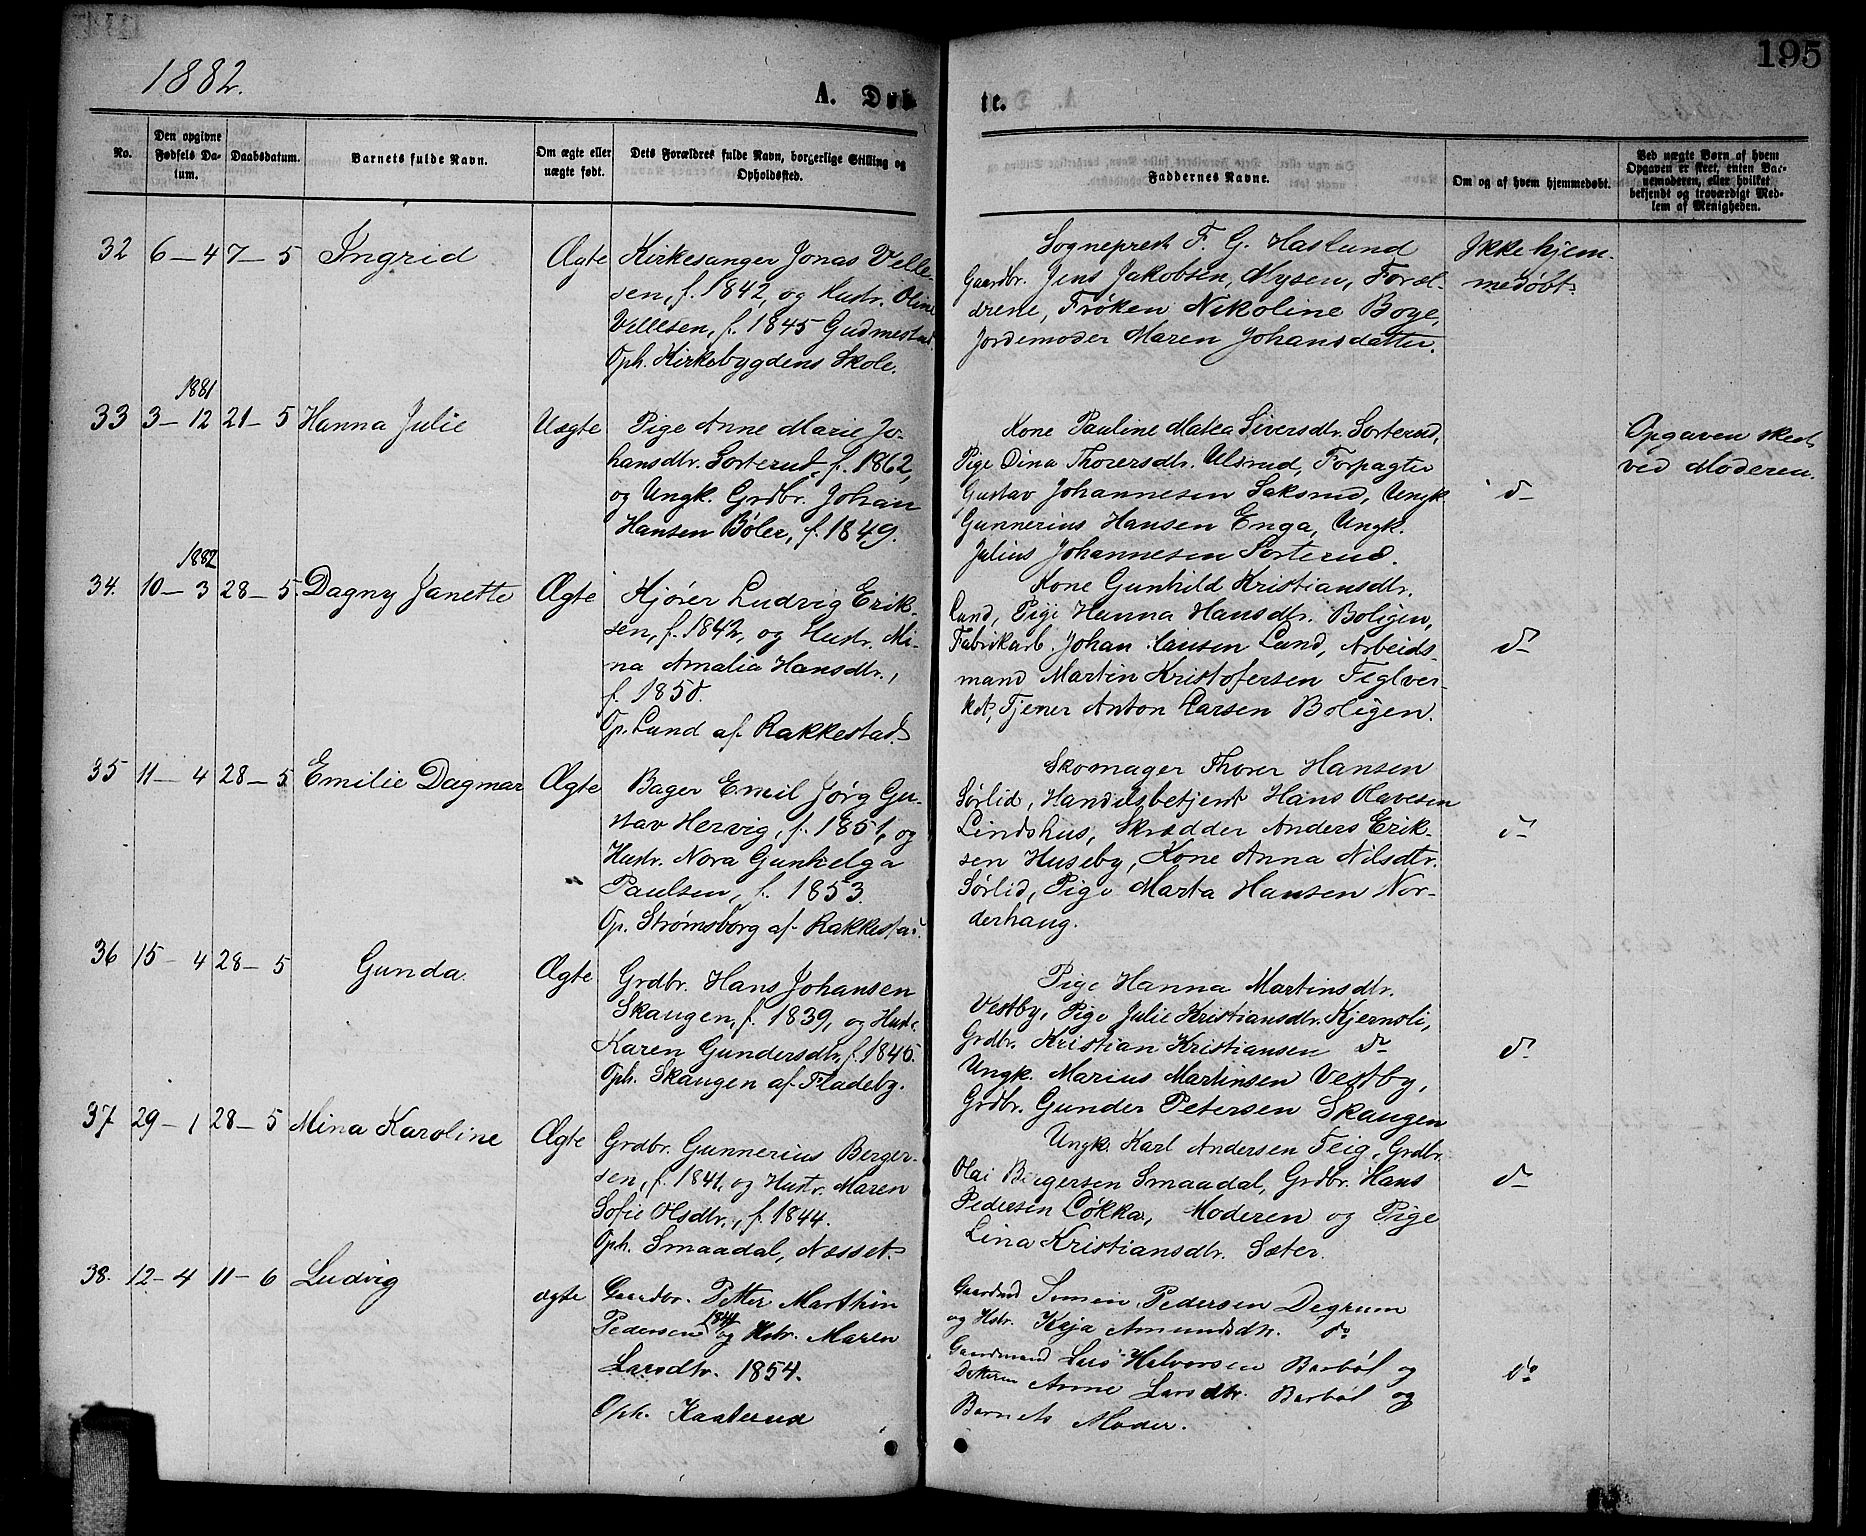 1882.
A. Døbte.
195
No.
Den opgivne Fødsels Datum.
Daabsdatum.
Barnets fulde Navn.
Om ægte eller uægte født.
Dets Forældres fulde Navn, borgerlige Stilling og Opholdssted.
Faddernes Navne.
Om og af hvem hjemmedøbt.
Ved uægte Børn af hvem Opgaven er skeet, enten Barnemoderen, eller hvilket bekjendt og troværdigt Medlem af Menigheden.
32 6–4 7–5 Ingrid Ægte
Kirkesanger Jonas Velle-
sen, f. 1842, og Hustr. Oline
Villesen, f. 1845 Gudmestad.
Oph. Kirkebygdens Skole.
Sogneprest F. G. Haslund
Gaardbr. Jens Jakobsen, Mysen, Foræl-
drene, Frøken Nikoline Boye,
Jordemoder Maren Johansdatter.
Ikke hjem-
medøbt.
1881
33 3–12 21–5 Hanna Julie Uægte
Pige Anne Marie Jo-
hansdtr. Sorterud, f. 1862,
og Ungk. Grdbr. Johan
Hansen Bøler, f. 1849.
Kone Pauline Matea Siversdtr. Sorterud,
Pige Dina Thorersdtr. Ulsrud, Forpagter
Gustav Johannesen Saksrud, Ungk.
Gunnerius Hansen Enga, Ungk.
Julius Johannesen Sorterud.
do
Opgaven skeet
ved Moderen.
1882
34. 10–3 28–5 Dagny Janette Ægte
Kjører Ludvig Erik-
sen, f. 1842, og Hustr. Mi-
na Amalia Hansdtr.,
f. 1850.
Op. Lund af Rakkestad.
Kone Gunhild Kristiansdtr.
Lund, Pige Hanna Hansdtr. Boligen,
Fabrikarb. Johan Hansen Lund, Arbeids-
mand Martin Kristofersen Teglver-
ket, Tjener Anton Larsen Boligen.
do
35 11–4 28–5 Emilie Dagmar Ægte
Bager Emil Jørg Gu-
stav Hervig, f. 1851, og
Hustr. Nora Gunhelga
Paulsen, f. 1853.
Op. Strømsborg af Rakkestad.
Skomager Thorer Hansen
Sørlid, Handelsbetjent Hans Olavesen
Lindshus, Skrædder Anders Erik-
sen Huseby, Kone Anna Nilsdtr.
Sørlid, Pige Marta Hansen Nor-
derhaug.
do
36 15–4 28–5 Gunda. Ægte
Grdbr. Hans Johansen
Skaugen, f. 1839, og Hustr.
Karen Gundersdtr, f. 1845.
Oph. Skaugen af Fladeby.
Pige Hanna Martinsdtr.
Vestby, Pige Julie Kristiansdtr. Kjernsli,
Grdbr. Kristian Kristiansen do
Ungk. Marius Martinsen Vestby,
Grdbr. Gunder Petersen Skaugen
do
37 29–1 28–5 Mina Karoline Ægte
Grdbr. Gunnerius Berger-
sen, f. 1841, og Hustr. Maren
Sofie Olsdtr., f. 1844.
Oph. Smaadal, Næsset.
Ungk. Karl Andersen Teig, Grdbr.
Olai Bergersen Smaadal, Grdbr. Hans
Pedersen Løkka, Moderen og Pige
Lina Kristiansdtr. Sæter.
do
38. 12–4 11–6 Ludvig ægte
Gaardbr. Petter Marthin
Pedersen 1841 og Hstr. Maren
Larsdtr. 1854.
Oph. Kaaterud
Gaardmd Simen Pedersen Degrum
og Hstr. Kaja Amundsdtr. do
Gaardmand Lars Halvorsen Barbøl og
Datteren Anne Larsdtr. Barbøl og
Barnets Moder.
do